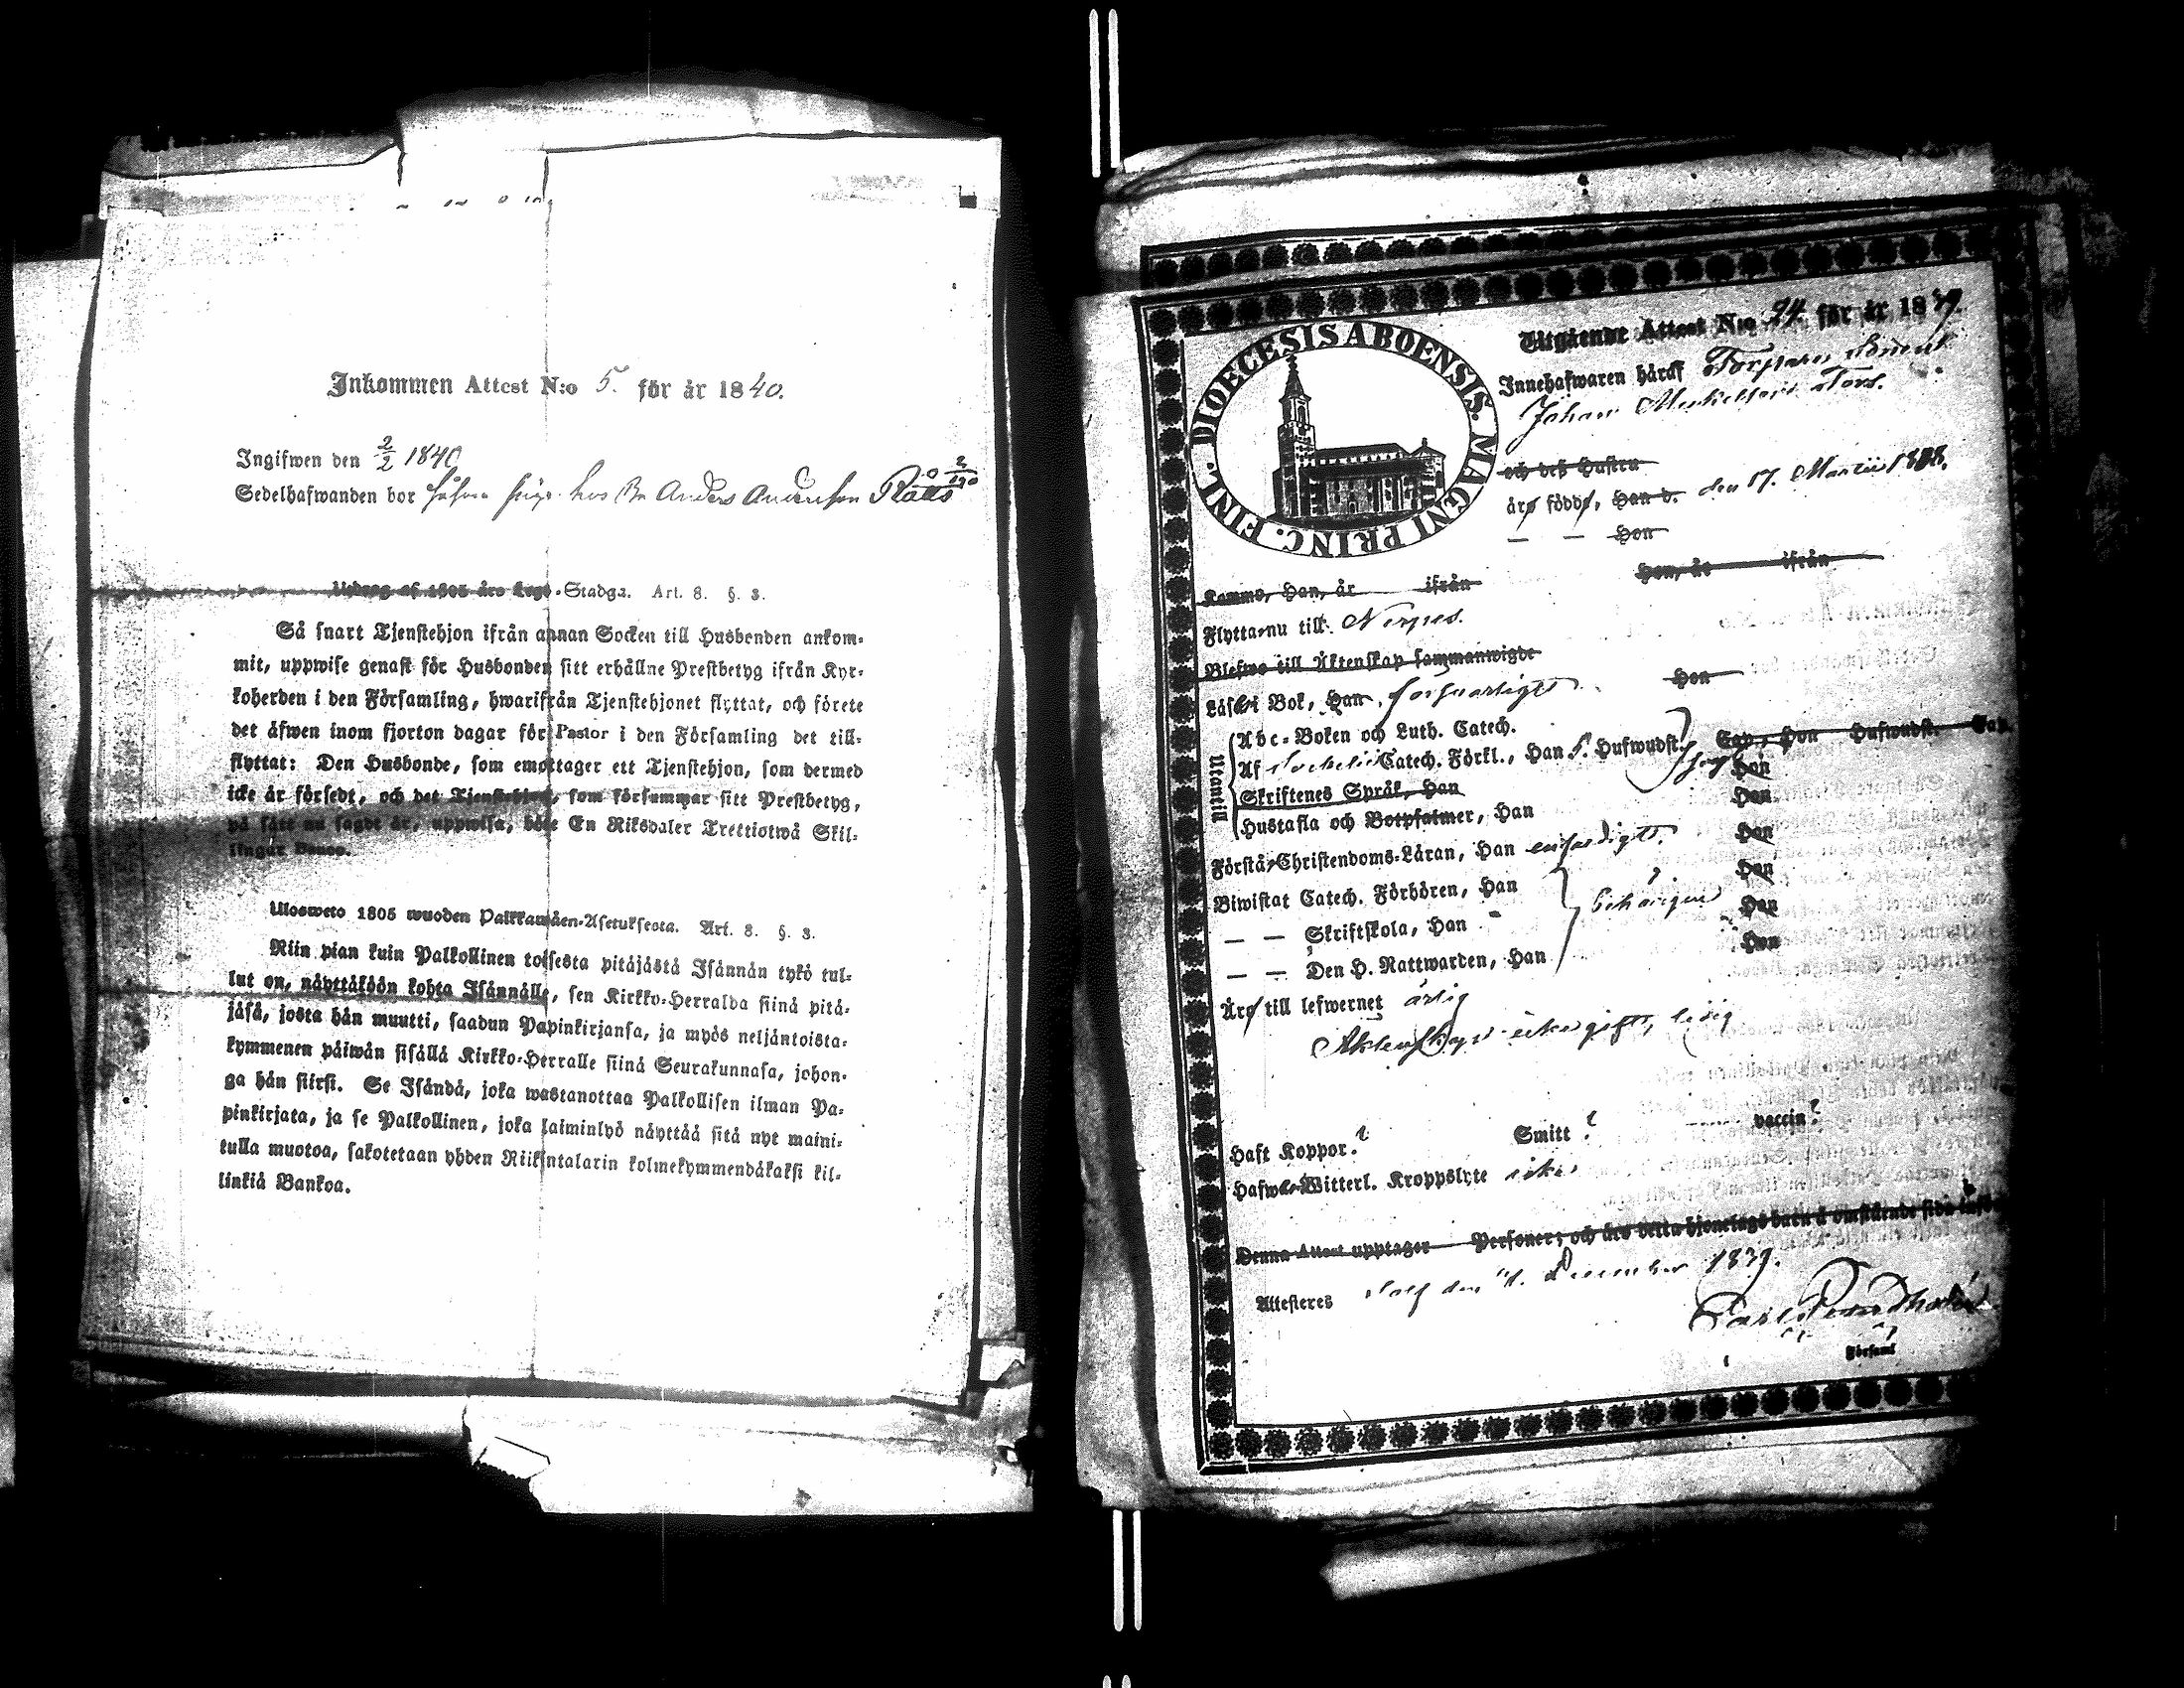 Inkommen Attest N:o 5. för år 1840.
Ingifwen den 2/2 1840
Sedelhafwanden bor hos Bn Anders Andersson
Utdrag af 1805 års Lego-Stadga. Art. 8. §. 3.
Så snart Tjenstehjon ifrån annan Socken till Husbonden ankom-
mit, uppwise genast för Husbonden sitt erhållne Prestbetyg ifrån Kyr-
koherden i den Församling, hwarifrån Tjenstehjonet flyttat, och förete
det äfwen inom fjorton dagar för Pastor i den Församling det till-
flyttat: Den Husbonde, som emottager ett Tjenstehjon, som dermed
icke är försedt, och det Tjenstehjon, som försummar sitt Prestbetyg,
på sätt nu sagdt är, uppwisa, böte En Riksdaler Trettiotwå Skil-
lingar Banco.
Uloswето 1805 wuoden Palkkawäen-Asetuksesta. Art. 8. §. 3.
Niin pian kuin Palkollinen toisesta pitäjästä Isännän tykö tul-
lut on, näyttäköön kohta Isännälle, sen Kirkko-Herralda siinä pitä-
jäsä, josta hän muutti, saadun Papinkirjansa, ja myös neljäntoista-
kymmenen päiwän sisällä Kirkko-Herralle siinä Seurakunnasa, johon-
ga hän siirsi. Se Isändä, joka wastanottaa Palkollisen ilman Pa-
pinkirjata, ja se Palkollinen, joka laiminlyö näyttää sitä nyt maini-
tulla muotoa, sakotetaan yhden Riiksntalarin kolmekymmendäkaksi kil-
linkiä Bankoa.
DIOECESIS ABOENSIS. MAGNI PRINC. FINL.
Utgående Attest N:o 94. för år 1839.
Innehafwaren häraf Torpare
Johan Tors.
och deß Hustru
äro födde, Han d. den 17. Martii
— — Hon
Kommo, Han, år ifrån Hon, år ifrån
Flytta nu till Nerpes.
Blefwo till Äktenskap sammanwigde
Läser i Bok, Han försvarligt Hon
Utantill
Abc-Boken och Luth. Catech.
Af Catech. Förkl., Han 5. Hufwudst. Cap., Hon Hufwudst. Cap.
Skriftenes Språk, Han Hon
Hustafla och Botpsalmer, Han Hon
Förstå Christendoms-Läran, Han enfaldigt. Hon
Biwistat Catech. Förhören, Han Hon
— — Skriftskola, Han behörigen Hon
— — Den H. Nattwarden, Han Hon
Äro till lefwernet ärlig
Äktenskap icke gift, ledig
Haft Koppor? Smitt? vaccin?
Hafwa Witterl. Kroppslyte icke
Denna Attest upptager Personer; och äro detta hjonelags barn å omstående sida
Attesteres den December 1839.
Carl
Församl